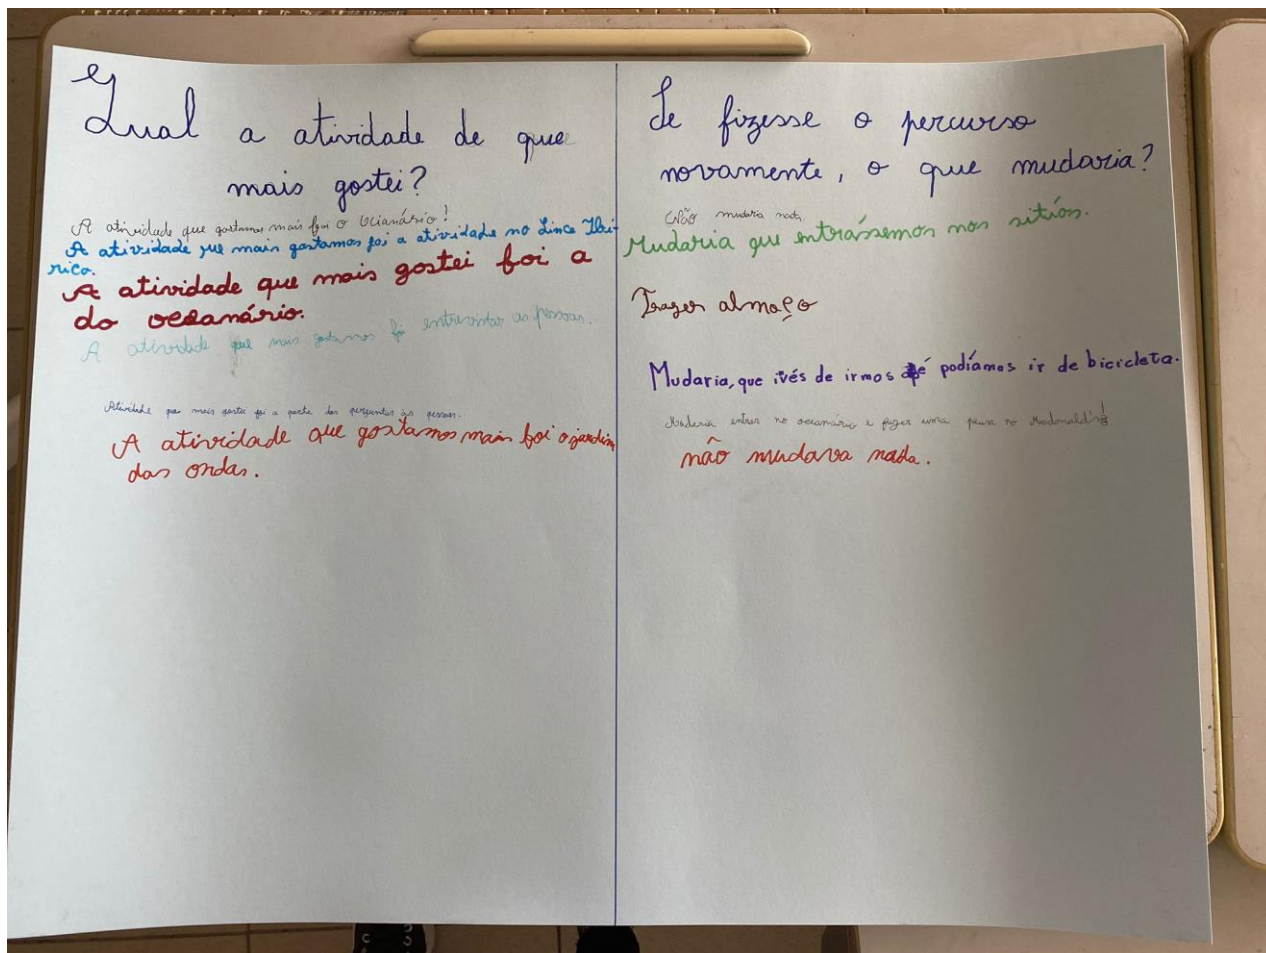 Qual a atividade de que
mais gostei?
A atividade que gostamos mais foi o Ocianário!
A atividade que mais gostamos foi a atividade no Lince Ibé-
rico.
A atividade que mais gostei foi a
do oceanário.
A atividade que mais gostamos foi entrevistar as pessoas.
Atividade que mais gostei foi a parte das perguntas às pessoas.
A atividade que gostamos mais foi o jardim
das ondas.
Se fizesse o percurso
novamente, o que mudaria?
Não mudaria nada.
Mudaria que entrássemos nos sitíos.
Trazer almoço
Mudaria, que ivés de irmos a pé podíamos ir de bicicleta.
Mudaria entrar no oceanário e fazer uma pausa no
não mudava nada.